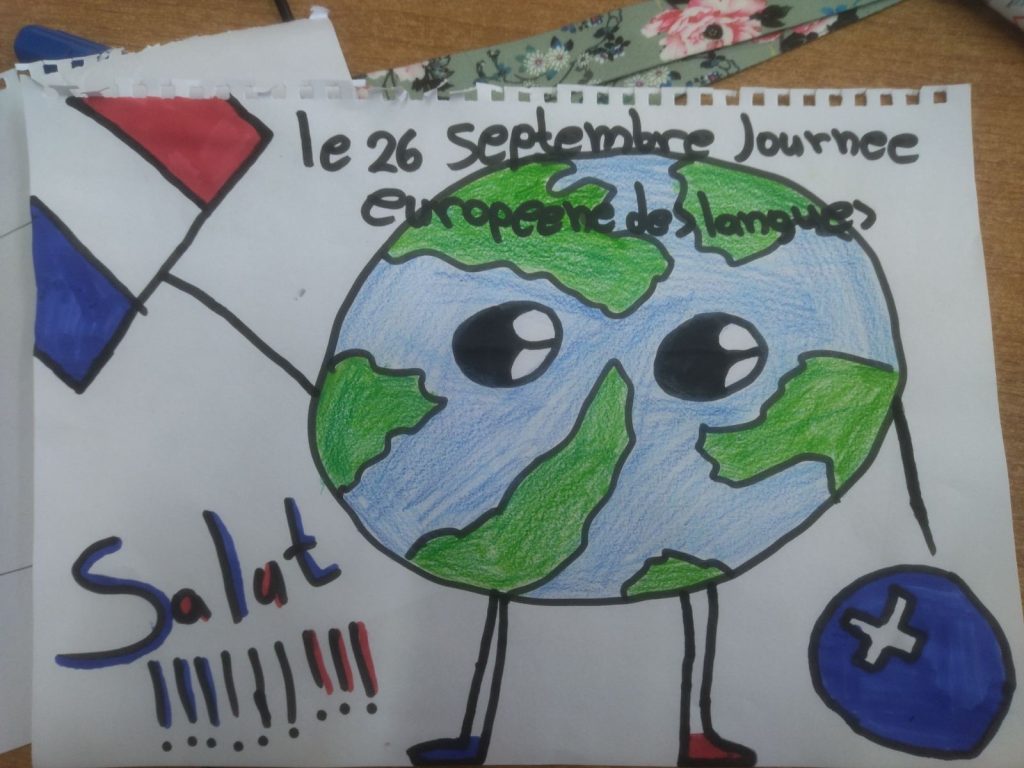 le 26 septembre Journee
europeene des langues
Salat
!!!!!!!!!